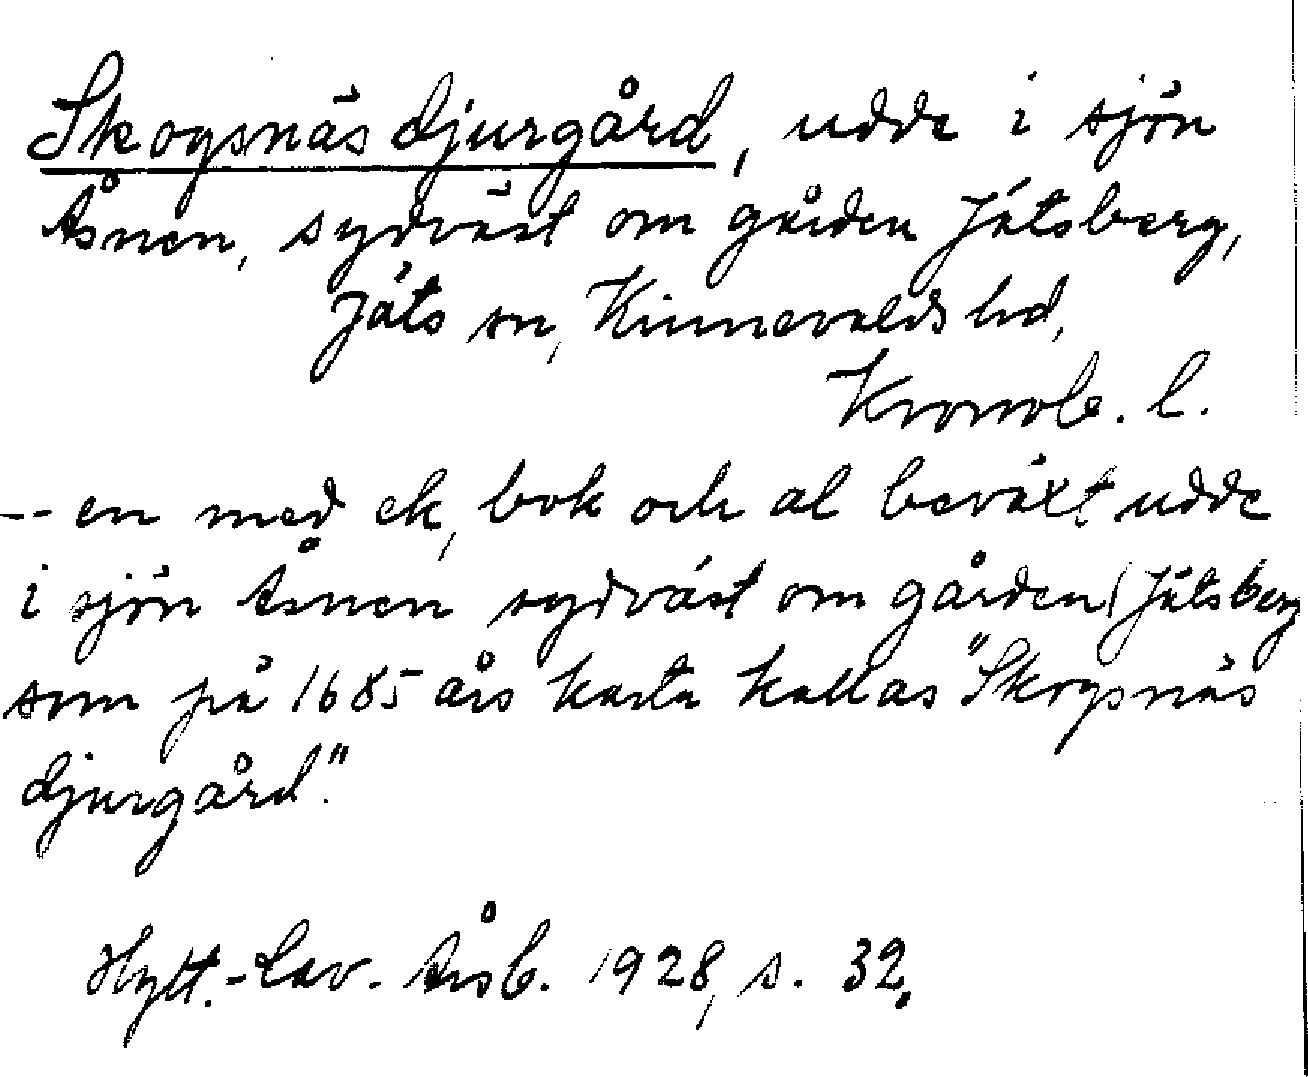 Skogsnäs djurgård, udde i sjön
Åsnen, sydväst om gården Jätsberg,
Jäts sn, Kinnevalds hd,
Kronob. l.
-- en med ek, bok och al beväxt udde
i sjön Åsnen sydväst om gården Jätsberg
som på 1685 års karta kallas "Skogsnäs
djurgård."
Hylt.-Cav. Årsb. 1928, s. 32.